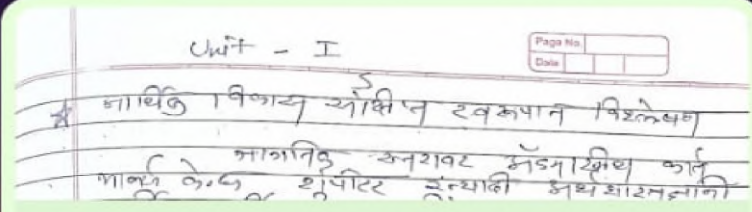 Unit - I
Page No.
Date
आर्थिक विकास संक्षिप्त स्वरूपात विश्लेषण
जागतिक स्तरावर अॅडम स्मिथ कार्ल
मार्क्स केन्स शुंपीटर इत्यादी अर्थशास्त्रज्ञांनी